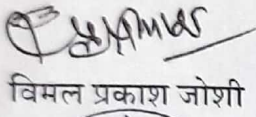 विमल प्रकाश जोशी